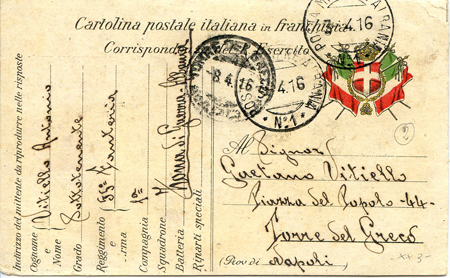 Cartolina postale italiana in franchigia
Corrispondenza del R. Esercito
8.4.16
4.16
4.16
ALBANIA
N°1
Indirizzo del mittente da riprodurre nelle risposte
Cognome e Nome Vitiello Antonio
Grado Sottotenente
Reggimento 55° Fanteria
Arma
Compagnia 1ª
Squadrone
Batteria
Riparti speciali
Al Signor
Gaetano Vitiello
Piazza del Popolo -44-
Torre del Greco
(Prov di Napoli
2